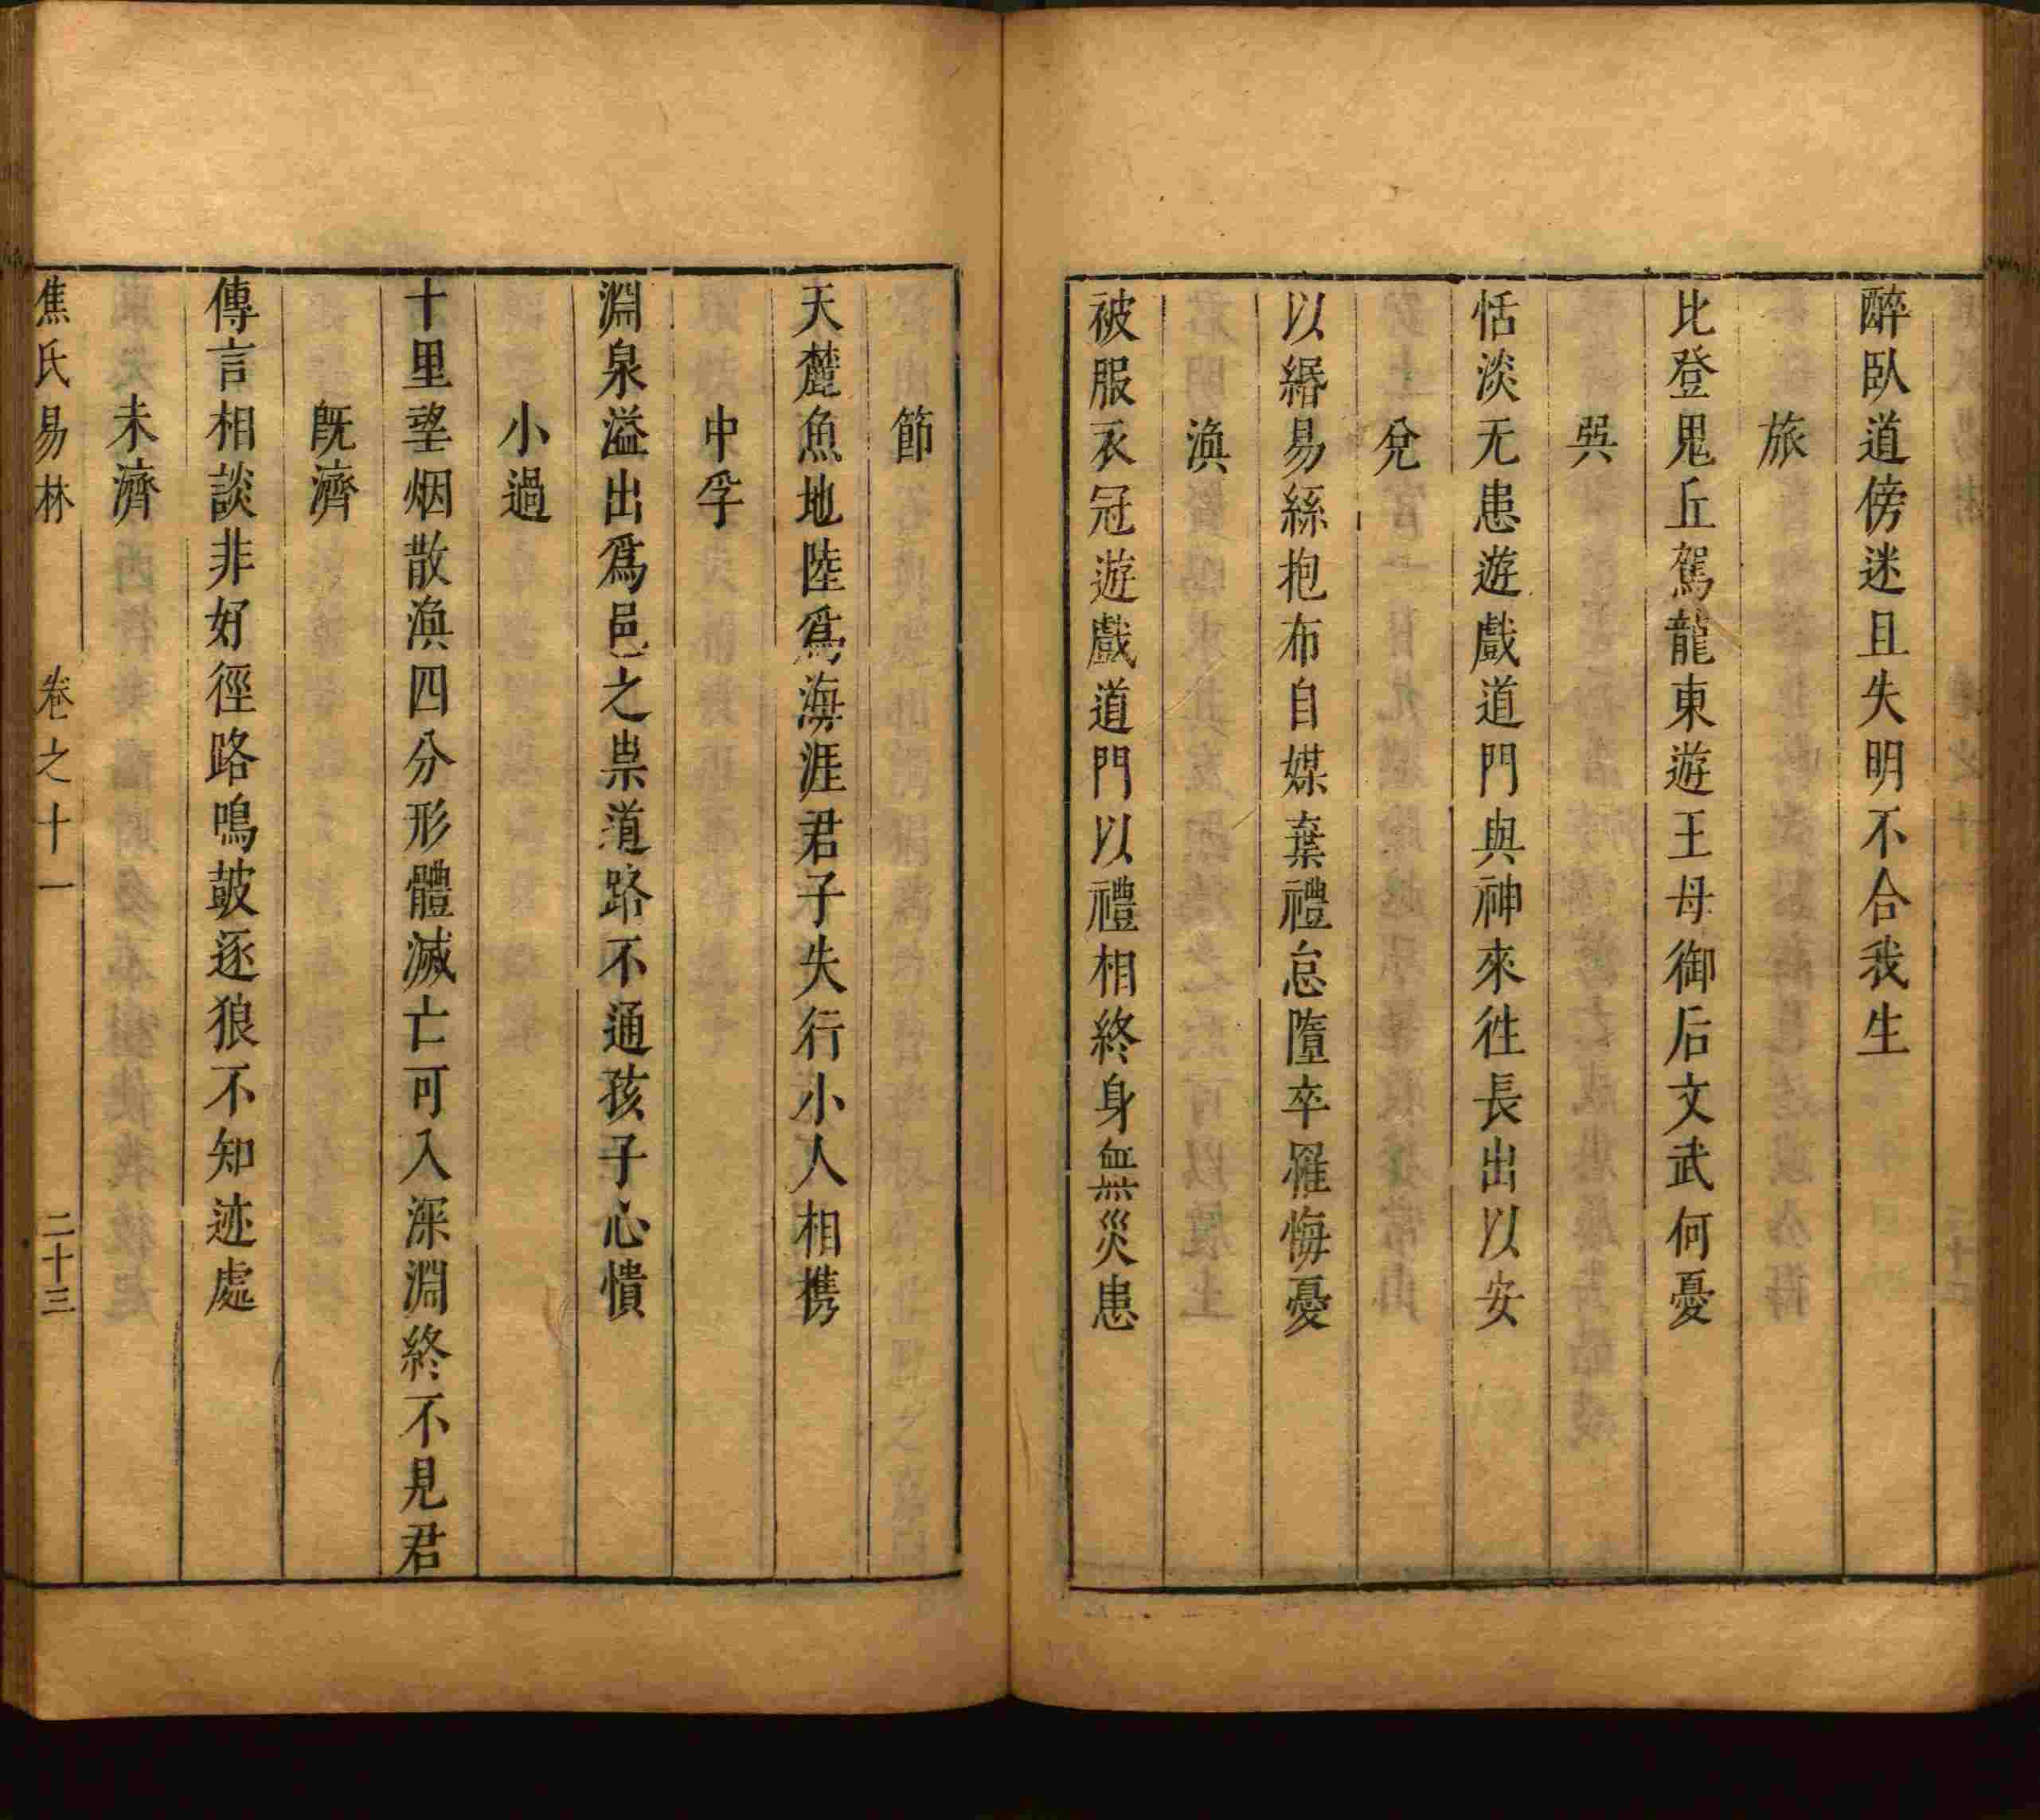 醉臥道傍迷且失明不合我生
旅
比登鬼丘駕龍東遊王母御后文武何憂
巺
恬淡无患遊戲道門與神來徃長出以安
兌
以緡易絲抱布自媒棄禮怠隳卒罹悔憂
渙
被服衣冠遊戲道門以禮相終身無災患
節
天麓魚地陸爲海涯君子失行小人相携
中孚
淵泉溢出爲邑之祟道路不通孩子心憒
小過
十里望烟散渙四分形體滅亡可入深淵終不見君
旣濟
傳言相談非好徑路鳴皷逐狼不知迹處
未濟
焦氏易林 卷之十一 二十三